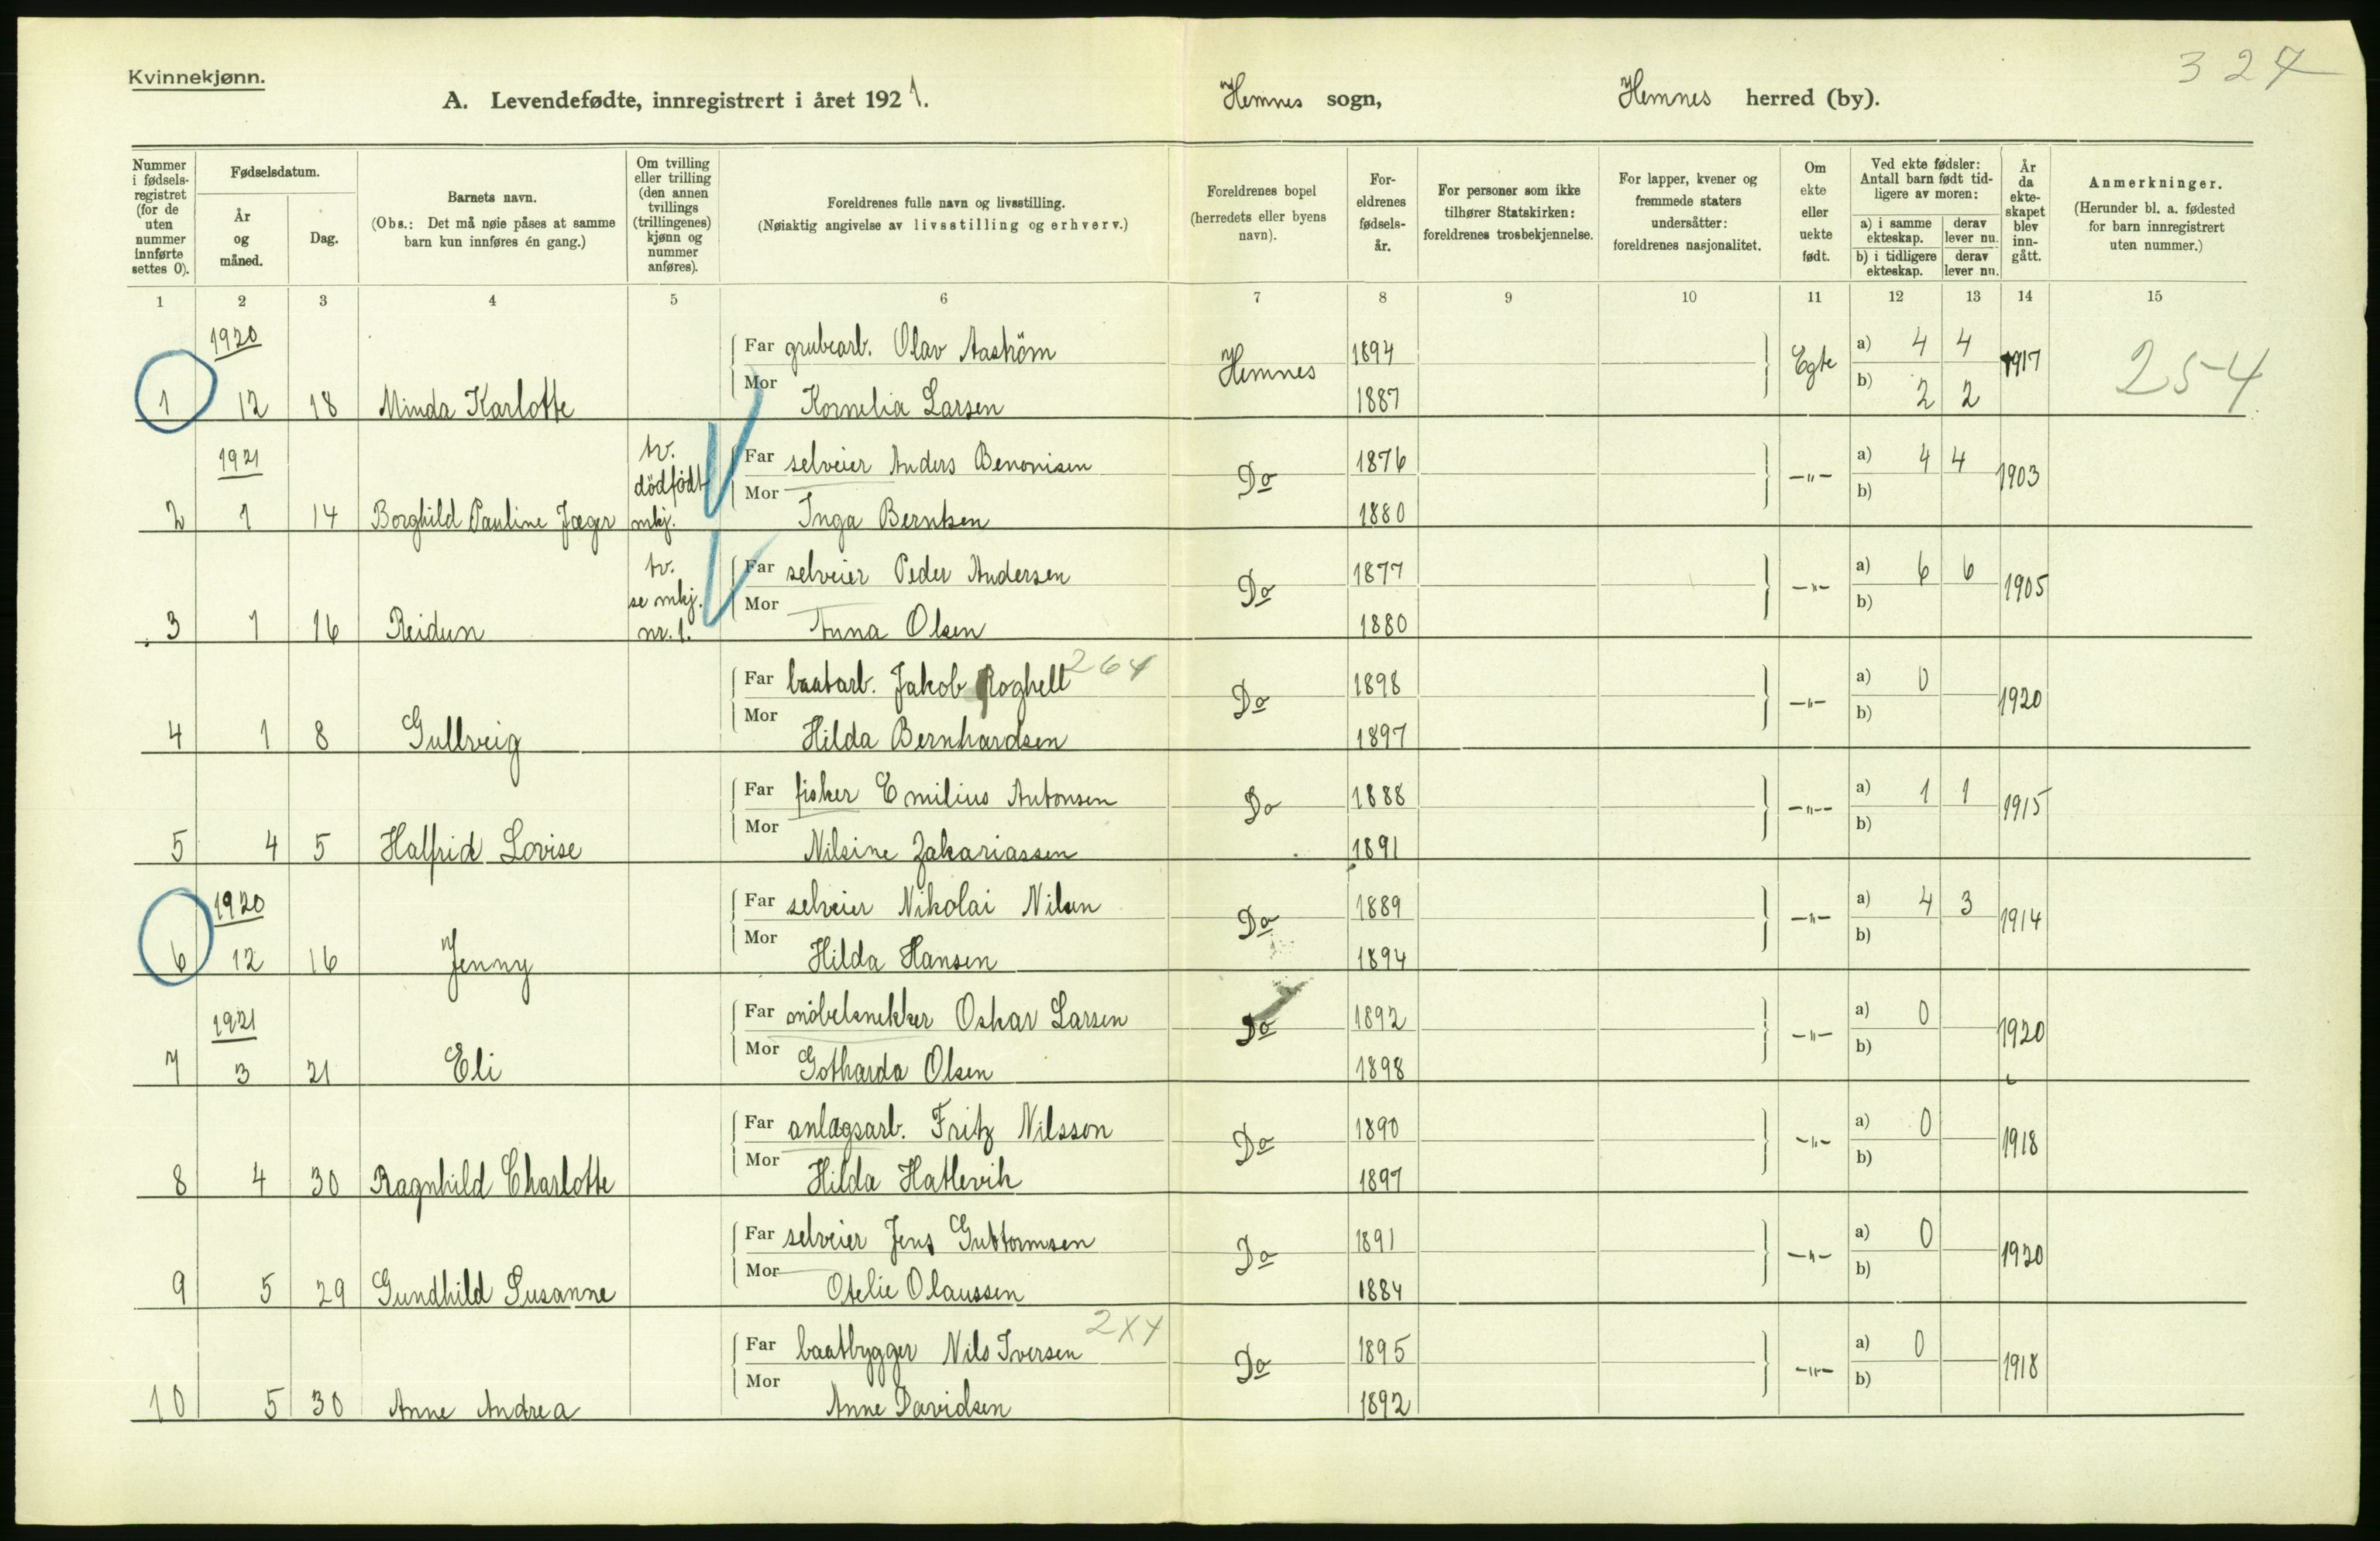 Kvinnekjønn.
327
A. Levendefødte, innregistrert i året 1921.
Hemnes sogn,
Hemnes herred (by).
Nummer i fødsels-registret (for de uten nummer innførte settes 0).
Fødselsdatum.
År og måned.
Dag.
Barnets navn.
(Obs.: Det må nøie påses at samme barn kun innføres én gang.)
Om tvilling eller trilling (den annen tvillings (trillingenes) kjønn og nummer anføres).
Foreldrenes fulle navn og livsstilling.
(Nøiaktig angivelse av livsstilling og erhverv.)
Foreldrenes bopel (herredets eller byens navn).
For-eldrenes fødsels-år.
For personer som ikke tilhører Statskirken: foreldrenes trosbekjennelse.
For lapper, kvener og fremmede staters undersåtter: foreldrenes nasjonalitet.
Om ekte eller uekte født.
Ved ekte fødsler: Antall barn født tid-ligere av moren:
a) i samme ekteskap.
derav lever nu.
b) i tidligere ekteskap.
derav lever nu.
År da ekte-skapet blev inn-gått.
Anmerkninger.
(Herunder bl. a. fødested for barn innregistrert uten nummer.)
1 2 3 4 5 6 7 8 9 10 11 12 13 14 15
1920
Far grubearb. Olav Aaström Hemnes 1894 Egte a) 4 4 1917 254
1 12 18 Minda Karlotte Mor Kornelia Larsen 1887 b) 2 2
1921 tv. dödfödt mkj.
Far selveier Anders Benonisen Do 1876 -"- a) 4 4 1903
2 1 14 Borghild Pauline Jæger Mor Inga Berntsen 1880 b)
tv. se mkj. nr. 1.
Far selveier Peder Andersen Do 1877 -"- a) 6 6 1905
3 1 16 Reidun Mor Anna Olsen 1880 b)
Far baatarb. Jakob Roghell 264 Do 1898 -"- a) 0 1920
4 1 8 Gullveig Mor Hilda Bernhardsen 1897 b)
Far fisker Emilius Antonsen Do 1888 -"- a) 1 1 1915
5 4 5 Halfrid Lovise Mor Nilsine Zakariassen 1891 b)
1920
Far selveier Nikolai Nilsen Do 1889 -"- a) 4 3 1914
6 12 16 Jenny Mor Hilda Hansen 1894 b)
1921
Far möbelsnekker Oskar Larsen Do 1892 -"- a) 0 1920
7 3 21 Eli Mor Gotharda Olsen 1898 b)
Far anlægsarb. Fritz Nilsson Do 1890 -"- a) 0 1918
8 4 30 Ragnhild Charlotte Mor Hilda Hatlevik 1897 b)
Far selveier Jens Guttormsen Do 1891 -"- a) 0 1920
9 5 29 Gundhild Susanne Mor Otelie Olaussen 1884 b)
Far baatbygger Nils Iversen 2X4 Do 1895 -"- a) 0 1918
10 5 30 Anne Andrea Mor Anne Davidsen 1892 b)